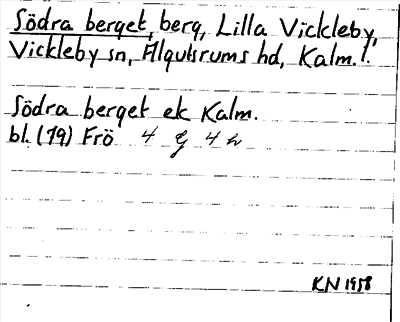 Södra berget, berg, Lilla Vickleby,
Vickleby sn, Algutsrums hd, Kalm. l.
Södra berget ek Kalm.
bl. (19) Frö 4 g 4 h
KN 1958